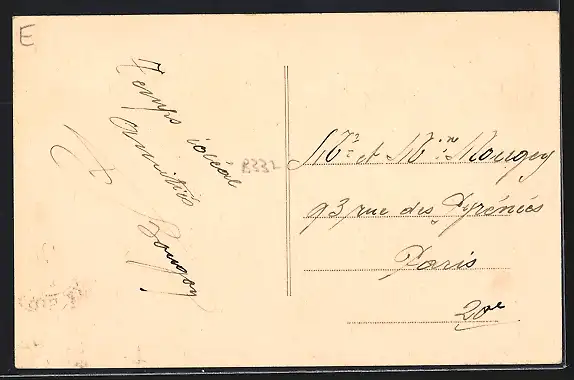 E
Temps idéal
amitiés
8332
Mr et Mme Mougey
93 rue des Pyrénées
Paris
20e